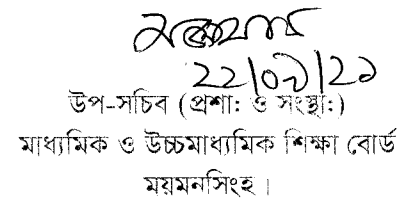 ২২/০৯/২১
উপ-সচিব (প্রশা: ও সংস্থা:)
মাধ্যমিক ও উচ্চমাধ্যমিক শিক্ষা বোর্ড
ময়মনসিংহ।